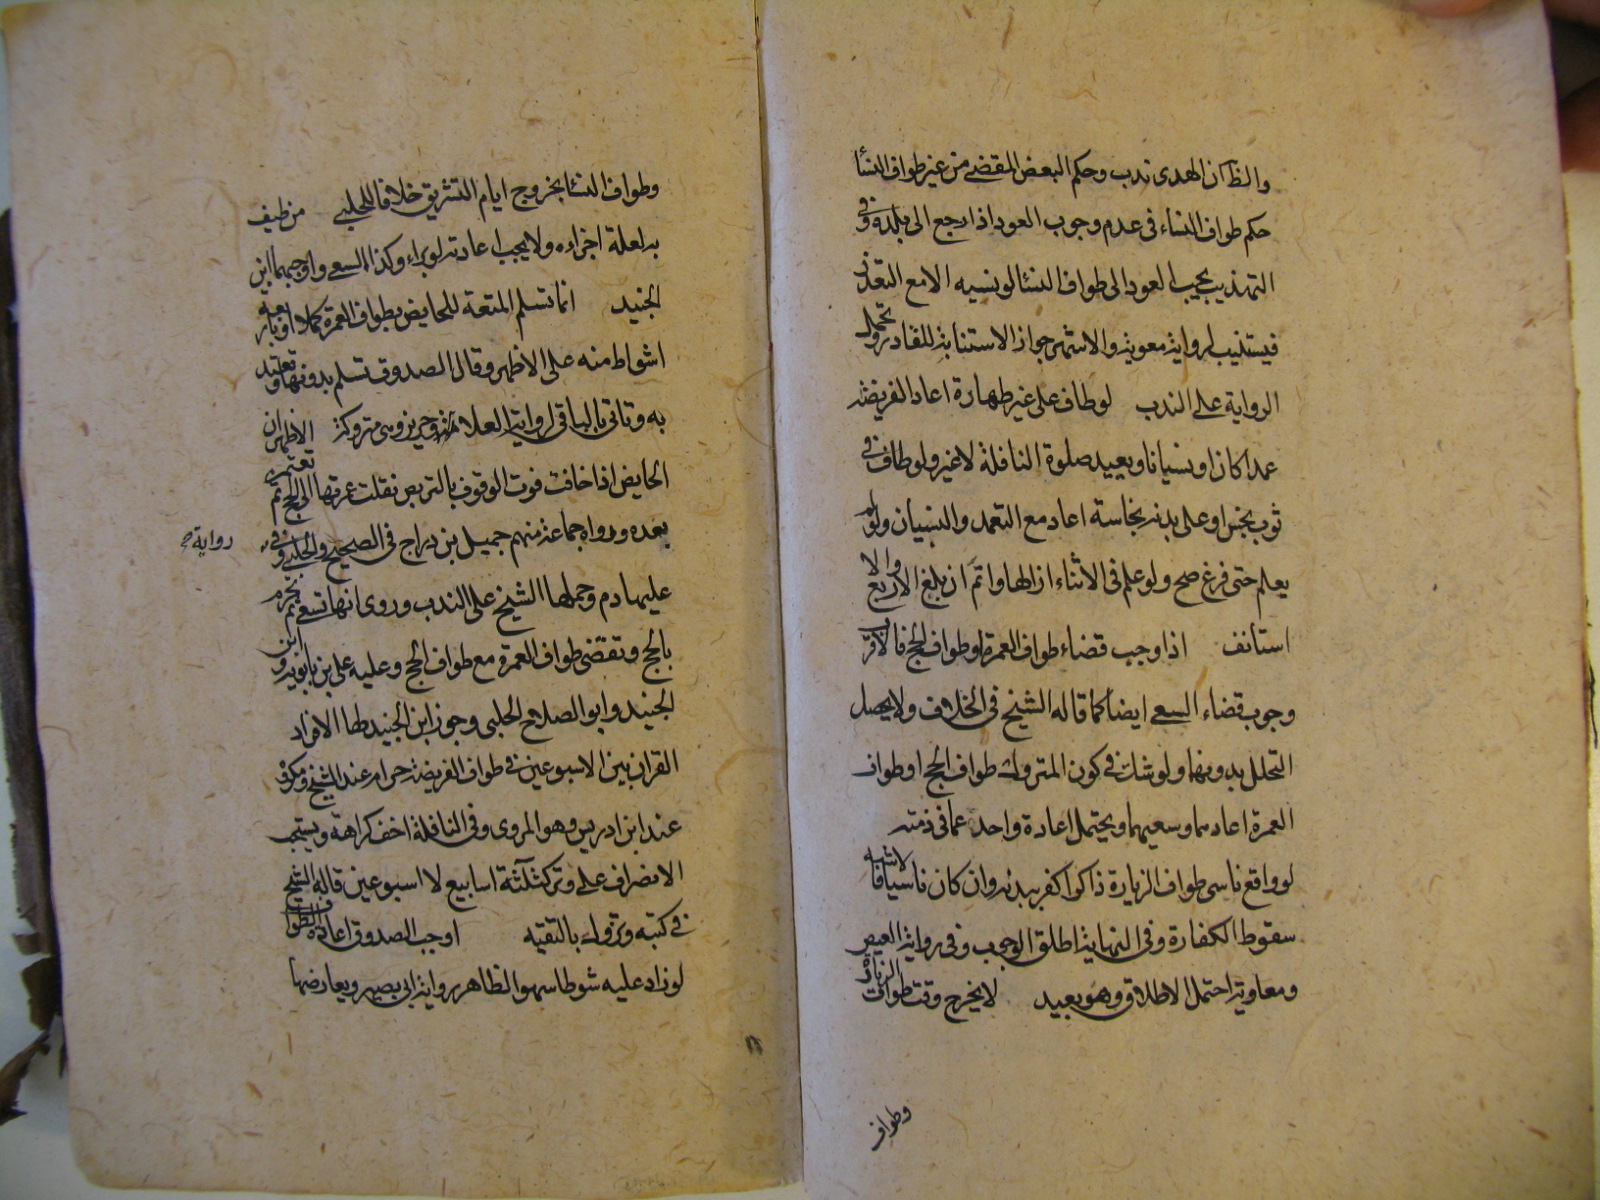 والظ ان الهدى ندب وحكم البعض المقضي من غير طواف النسأ
حكم طواف النساء فى عدم وجوب العود اذا رجع الى بلده وفى
التهذيب يجب العود الى طواف النسأ لو نسيه الا مع التعذر
فيستنيب لرواية معوية والاشهر جواز الاستنابة للقادر وتحمل
الرواية على الندب لو طاف على غير طهارة اعاد الفريضة
عمدا كان او نسيانا ويعيد صلوة النافلة لا غير ولو طاف فى
ثوب نجس او على بدنه نجاسة اعاد مع التعمد والنسيان ولو لم
يعلم حتى فرغ صح ولو علم فى الاثناء ازالها واتم ان بلغ الاربع والا
استانف اذا وجب قضاء طواف العمرة او طواف الحج فالاقرب
وجوب قضاء السعى ايضا كما قاله الشيخ فى الخلاف ولا يحصل
التحلل بدونها ولو شك فى كون المتروك طواف الحج او طواف
العمرة اعادهما وسعيهما ويحتمل اعادة واحد عما فى ذمته
لو واقع ناسى طواف الزيارة ذاكرا كفر ببدنه وان كان ناسيا فالاشبه
سقوط الكفارة وفى النهاية اطلق الوجوب وفى رواية العيص
ومعاوية احتمل الاطلاق وهو بعيد لا يخرج وقت طواف الزيارة
وطواف
وطواف النسأ بخروج ايام التشريق خلافا للحلبى من طيف
به لعلة اجزاءه ولا يجب اعادته لو براء وكذا السعى واوجبهما ابن
الجنيد انما تسلم المتعة للحايض بطواف العمرة كملا او باربعة
اشواط منه على الاظهر وقال الصدوق تسلم بدونها وتعتد
به وتاتى بالباقى لرواية العلا وحريز وهى متروكة الاظهر ان
الحايض اذا خافت فوت الوقوف بالتربص نقلت عمرتها الى الحج ثم تعتمر
بعده ورواه جماعة منهم جميل بن دراج فى الصحيح والحلبى وفى
رواية صح
عليها دم وحملها الشيخ على الندب وروى انها تسعى ثم تحرم
بالحج وتقضى طواف العمرة مع طواف الحج وعليه على بن بابويه وابن
الجنيد وابو الصلاح الحلبى وجوز ابن الجنيد لها الافراد
القران بين الاسبوعين فى طواف الفريضة حرام عند الشيخ ومكروه
عند ابن ادريس وهو المروى وفى النافلة اخف كراهة ويستحب
الانصراف على وتر كثلثة اسابيع لا اسبوعين قاله الشيخ
فى كتبه وتزول بالتقيه اوجب الصدوق اعادة الطواف
لو زاد عليه شوطا سهوا لظاهر رواية ابى بصير ويعارضها